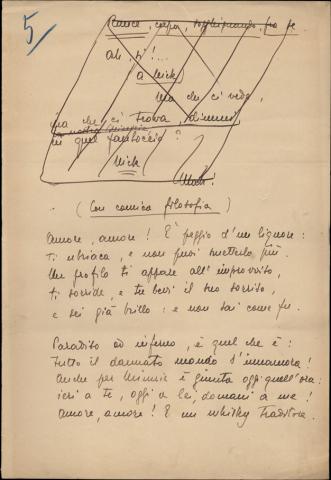 5
ah, sì!...
a Mick
ma che ci vede,
ma che ci trova, dimmi,
in quel fantoccio?
Mick
(Con comica filosofia)
Amore, amore! È peggio d'un liquore:
ti ubriaca, e non puoi smetterlo più.
Un profilo ti appare all'improvviso,
ti sorride, e tu bevi il suo sorriso,
e sei già brillo: e non sai come fu.
Paradiso od inferno, è quel che è:
tutto il dannato mondo s'innamora!
Anche per Minnie è giunta oggi quell'ora:
ieri a te, oggi a lei, domani a me!
Amore, amore! È un whisky traditore.